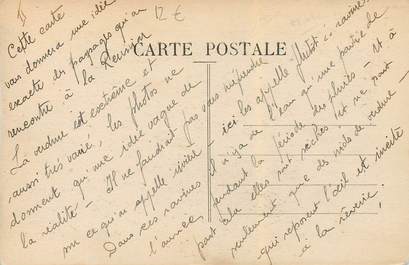 12 €
CARTE POSTALE
Cette carte
vous donnera une idée
exacte des paysages qu'on
rencontre à la Réunion
La verdure est extrême et
aussi très varié, les photos ne
donnent qu'une idée vague de
la réalité - Il ne faudrait pas vous méprendre
sur ce qu'on appelle ici
Dans ces ravines
l'année
ici les appelle plutôt
il n'y a de l'eau qu'une partie de
pendant la période des pluies - et à
part cela elles sont sèches et ne sont
seulement que des nids de verdure -
qui reposent l'œil et incite
à la rêverie!